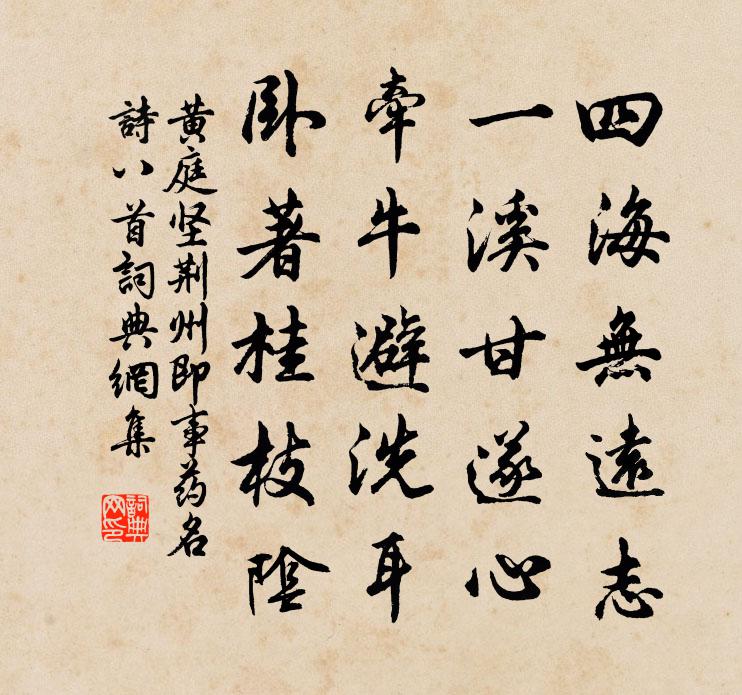 四海無遠志
一溪甘遂心
牽牛避洗耳
卧著桂枝陰
黄庭坚荆州即事药名
詩八首詞典網集
詞典
网印